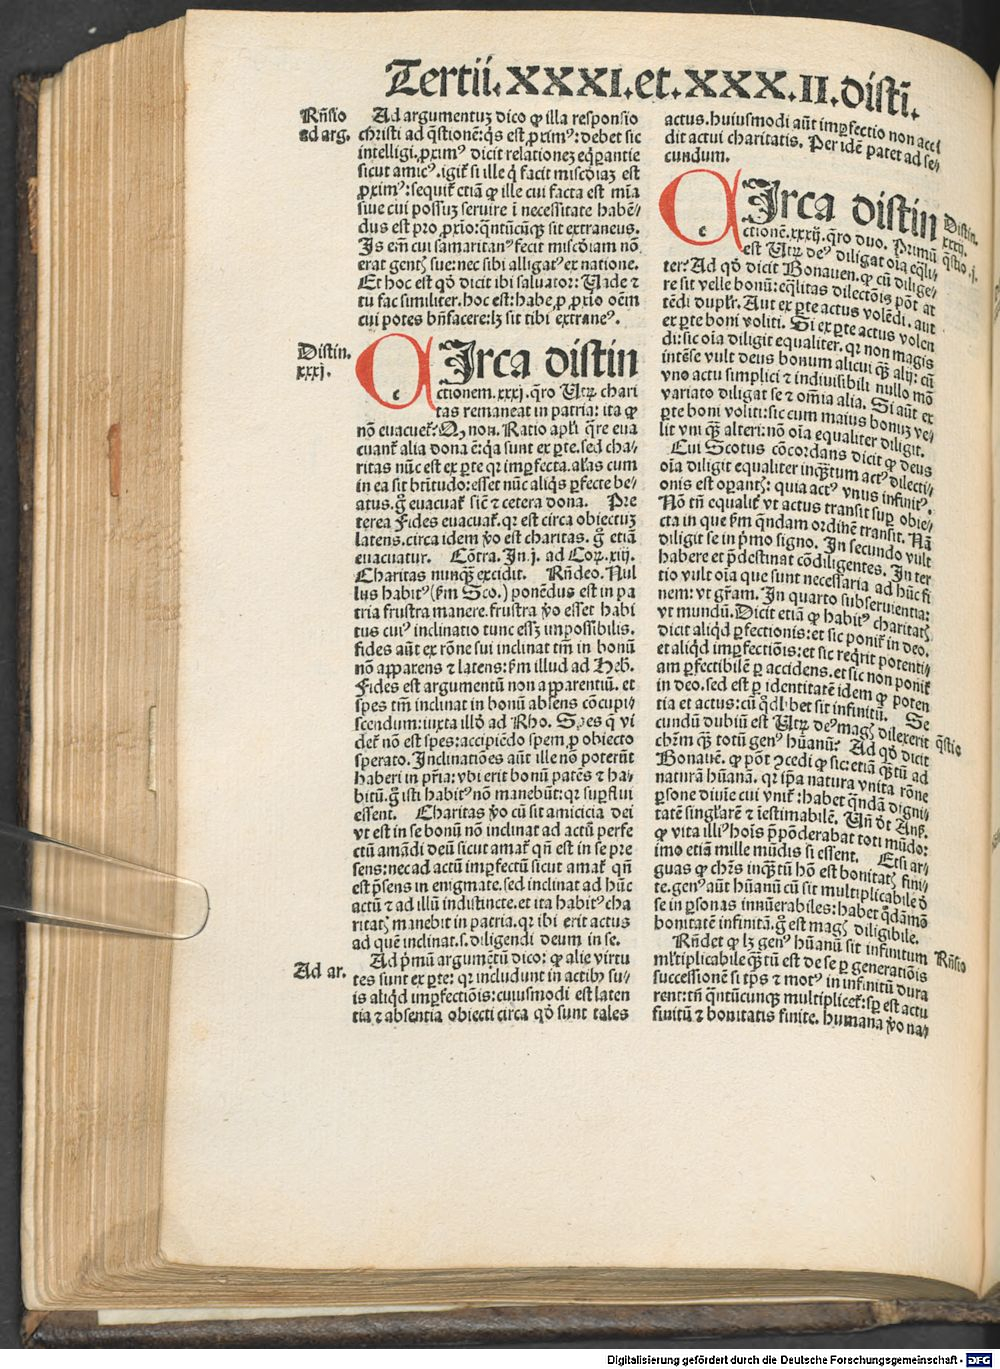 Tertii. XXXI. et. XXX. II. distī.
Rñsio
ad arg.
Ad argumentuꝫ dico ꝙ illa responsio
christi ad q̄stionē: q̄s est ꝓximꝰ: debet sic
intelligi. ꝓximꝰ dicit relationeꝫ eq̄parantie
sicut amicꝰ. igit᷑ si ille q̇ facit miscd̓iaꝫ est
ꝓximꝰ: sequit᷑ etiā ꝙ ille cui facta est mīa
siue cui possuꝫ seruire ī necessitate habē-
dus est pro ꝓxīo: q̄ntūcūqꝫ sit extraneus.
Is em̄ cui samaritanꝰ fecit miscd̓iam nō
erat gentꝭ sue: nec sibi alligatꝰ ex natione.
Et hoc est qd̓ dicit ibi saluator: Uade ⁊
tu fac similiter. hoc est: habe ꝓ ꝓxīo oēm
cui potes bn̄facere: lꝫ sit tibi extraneꝰ.
Distin.
xxxj.
c Irca distin
ctionem. xxxj. q̄ro Utꝝ chari
tas remaneat in patria: ita ꝙ
nō euacuet᷑: Qꝫ non. Ratio apl̓i q̄re eua
cuant᷑ alia dona ē: q̇a sunt ex ꝑte. sed cha-
ritas nūc est ex ꝑte qꝛ imꝑfecta. al̓as cum
in ea sit btītudo: esset nūc aliq̄s ꝑfecte be-
atus. g̊ euacuat᷑ sic̄ ⁊ cetera dona. Pre
terea Fides euacuat᷑. qꝛ est circa obiectuꝫ
latens. circa idem v̊o est charitas. g̊ etiā
euacuatur. Cōtra. In. j. ad Coꝝ. xiij.
Charitas nunqꝫ̄ excidit. Rñdeo. Nul
lus habitꝰ (ẜm Sco.) ponēdus est in pa
tria frustra manere. frustra v̊o esset habi
tus cuiꝰ inclinatio tunc essꝫ impossibilis.
fides aūt ex rōne sui inclinat tm̄ in bonū
nō apparens ⁊ latens: ẜm illud ad Heb̓.
Fides est argumentū non apparentiū. et
spes tm̄ inclinat in bonū absens cōcupi-
scendum: iuxta illd̓ ad Rho. Spes q̄ vi
det᷑ nō est spes: accipiēdo spem ꝓ obiecto
sperato. Inclinatiōes aūt ille nō poterūt
haberi in pr̄ia: vbi erit bonū patēs ⁊ ha-
bitū. g̊ isti habitꝰ nō manebūt: qꝛ suꝑflui
essent. Charitas v̊o cū sit amicicia dei
vt est in se bonū nō inclinat ad actū perfe
ctū amādi deū sicut amat᷑ qn̄ est in se pre
sens: nec ad actū imꝑfectū sicut amat᷑ qn̄
est p̄sens in enigmate. sed inclinat ad hūc
actū ⁊ ad illū indistincte. et ita habitꝰ cha
ritatꝭ manebit in patria. qꝛ ibi erit actus
ad quē inclinat. s. diligendi deum in se.
Ad ar.
Ad pᷓmū argumētū dico: ꝙ alie virtu
tes sunt ex ꝑte: qꝛ includunt in actibꝰ su-
is aliqd̓ imꝑfectiōis: cuiusmodi est laten
tia ⁊ absentia obiecti circa qd̓ sunt tales
actus. huiusmodi aūt imꝑfectio non acci
dit actui charitatis. Per idē patet ad se-
cundum.
Distin.
xxxij.
q̄stio. j.
c Irca distin
ctionē. xxxij. q̄ro duo. Primū
est Utꝝ deꝰ diligat oīa eq̄li-
ter: Ad qd̓ dicit Bonauen. ꝙ cū dilige-
re sit velle bonū: eq̄litas dilectōis pōt at
tēdi duplr̄. Aut ex ꝑte actus volēdi. aut
ex ꝑte boni voliti. Si ex ꝑte actus volen
di: sic oīa diligit equaliter. qꝛ non magis
intēse vult deus bonum alicui qꝫ̄ alij: cū
vno actu simplici ⁊ indiuisibili nullo mō
variato diligat se ⁊ om̄ia alia. Si aūt ex
ꝑte boni voliti: sic cum maius bonuꝫ ve-
lit vni qꝫ̄ alteri: nō oīa equaliter diligit.
Cui Scotus cōcordans dicit ꝙ deus
oīa diligit equaliter inqꝫ̄tum actꝰ dilecti-
onis est oꝑantꝭ: quia actꝰ vnus infinitꝰ.
Nō tn̄ equalit᷑ vt actus transit suꝑ obie-
cta in que ẜm q̄ndam ordinē transit. Nā
diligit se in pᷓmo signo. In secundo vult
habere et p̄destinat cōdiligentes. In ter
tio vult oīa que sunt necessaria ad hūc fi
nem: vt gr̄am. In quarto subseruientia:
vt mundū. Dicit etiā ꝙ habitꝰ charitatꝭ
dicit aliqd̓ ꝑfectionis: et sic ponit᷑ in deo.
et aliqd̓ imꝑfectiōis: et sic req̇rit potenti-
am ꝑfectibilē ꝑ accidens. et sic non ponit᷑
in deo. sed est ꝑ identitatē idem ꝙ poten
tia et actus: cū q̊dlibet sit infinitū. Se
cundū dubiū est Utꝝ deꝰ magꝭ dilexerit
q̄stio
chr̄m qꝫ̄ totū genꝰ hūanū: Ad qd̓ dicit
Bonauē. ꝙ pōt ꝯcedi ꝙ sic: etiā qꝫ̄tū ad
naturā hūanā. qꝛ ip̄a natura vnita rōne
ꝑsone diuīe cui vnit᷑: habet q̄ndā digni-
tatē singl̓arē ⁊ īestimabilē. Uñ dt̓ Anẜ.
ꝙ vita illiꝰ hoīs p̄pōderabat toti mūdo:
imo etiā mille mūdis si essent. Etsi ar-
guas ꝙ chr̄s inqꝫ̄tū hō est bonitatꝭ fini-
te. genꝰ aūt hūanū cū sit multiplicabile ꝺ̄
se in ꝑsonas innūerabiles: habet q̊dāmō
bonitatē infinitā. g̊ est magꝭ diligibile.
Rñsio
Rñdet ꝙ lꝫ genꝰ hūanū sit infinitum
ml̓tiplicabile qꝫ̄tū est de se ꝑ generatiōis
successionē si tp̄s ⁊ motꝰ in infinitū dura
rent: tn̄ q̄ntūcunqꝫ multiplicet᷑: sꝑ est actu
finitū ⁊ bonitatis finite. humana v̊o na-
Digitalisierung gefördert durch die Deutsche Forschungsgemeinschaft - DFG